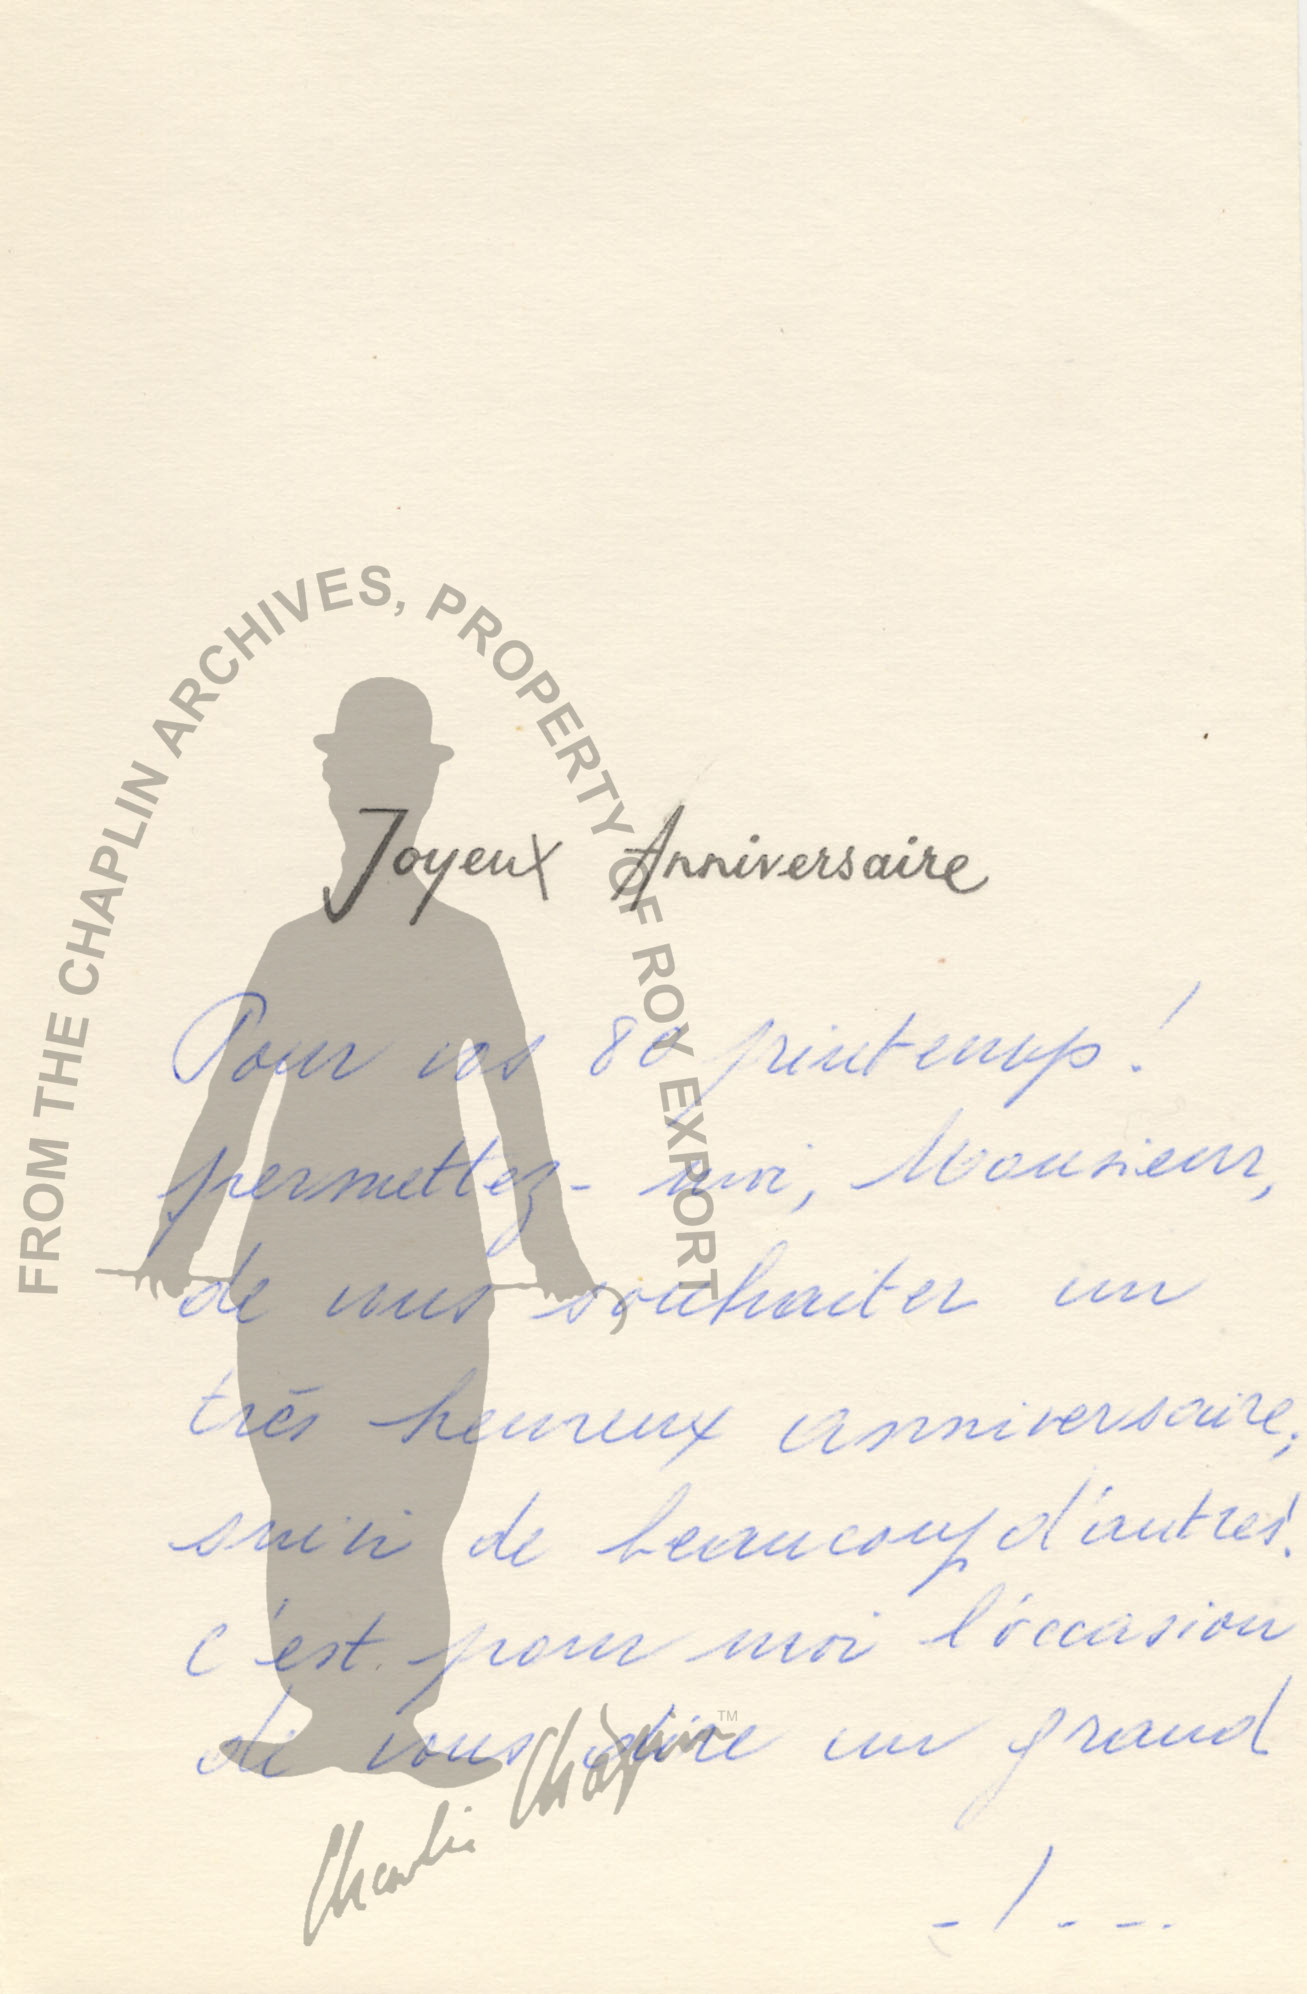 FROM THE CHAPLIN ARCHIVES, PROPERTY OF ROY EXPORT
Joyeux Anniversaire
Pour vos 80 printemps!
permettez-moi, Monsieur,
de vous souhaiter un
très heureux anniversaire,
suivi de beaucoup d'autres!
c'est pour moi l'occasion
de vous dire un grand
- / - - -.
Charlie Chaplin ™